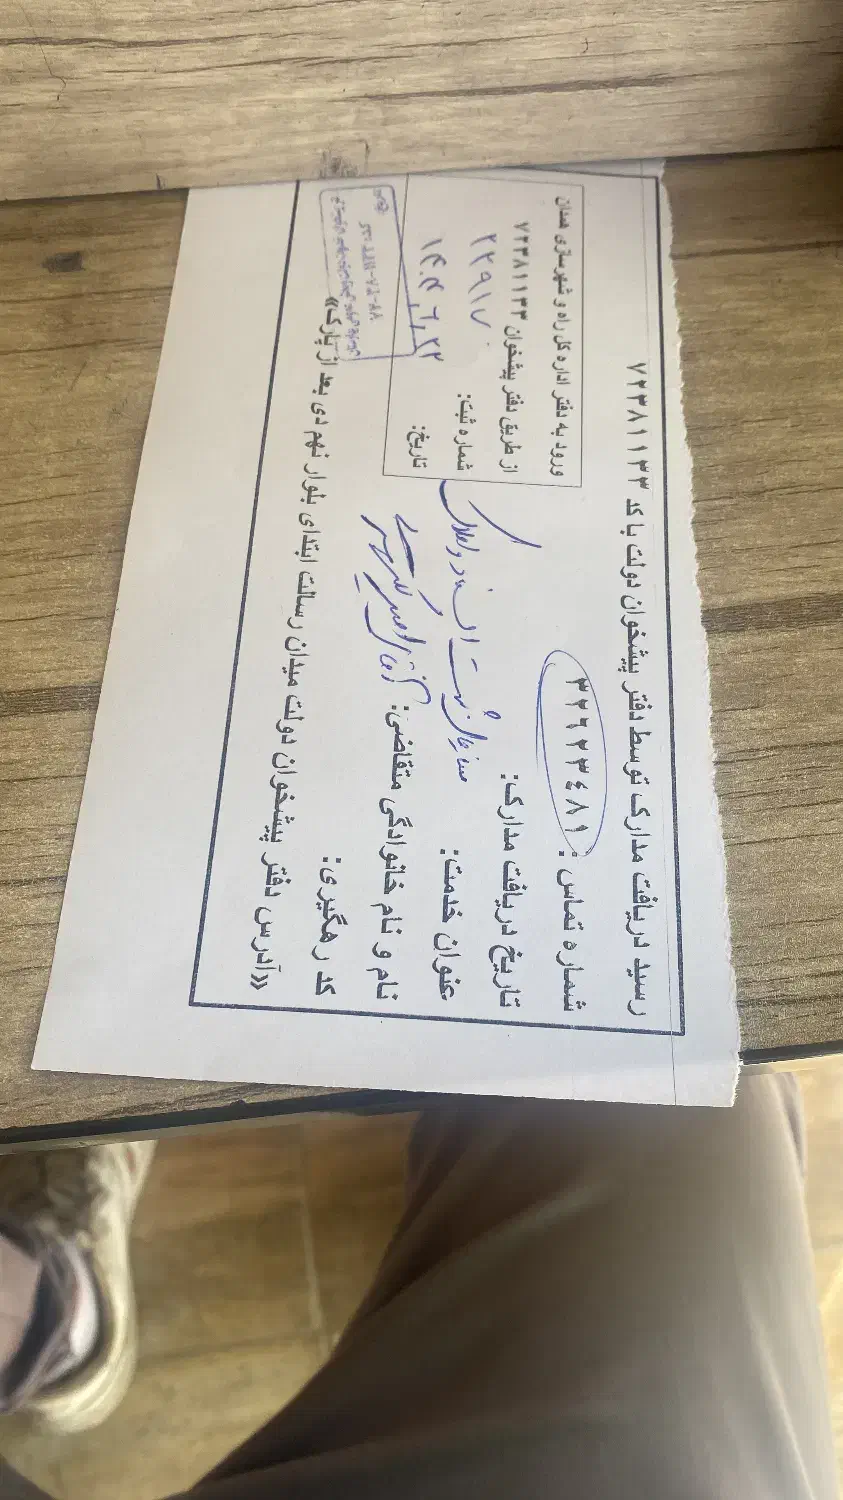 رسید دریافت مدارک توسط دفتر پیشخوان دولت با کد ۷۲۳۸۱۱۳۳
شماره تماس : ۳۲۶۲۳۴۸۱
تاریخ دریافت مدارک:
عنوان خدمت: سازمان ثبت اسناد و املاک
نام و نام خانوادگی متقاضی: آقای
کد رهگیری:
«آدرس دفتر پیشخوان دولت میدان رسالت ابتدای بلوار نهم دی بعد از پارک»
ورود به دفتر اداره کل راه و شهرسازی همدان
از طریق دفتر پیشخوان ۷۲۳۸۱۱۳۳
شماره ثبت: ۲۲۹۱۷
تاریخ: ۱۴۰۴,۶,۲۲